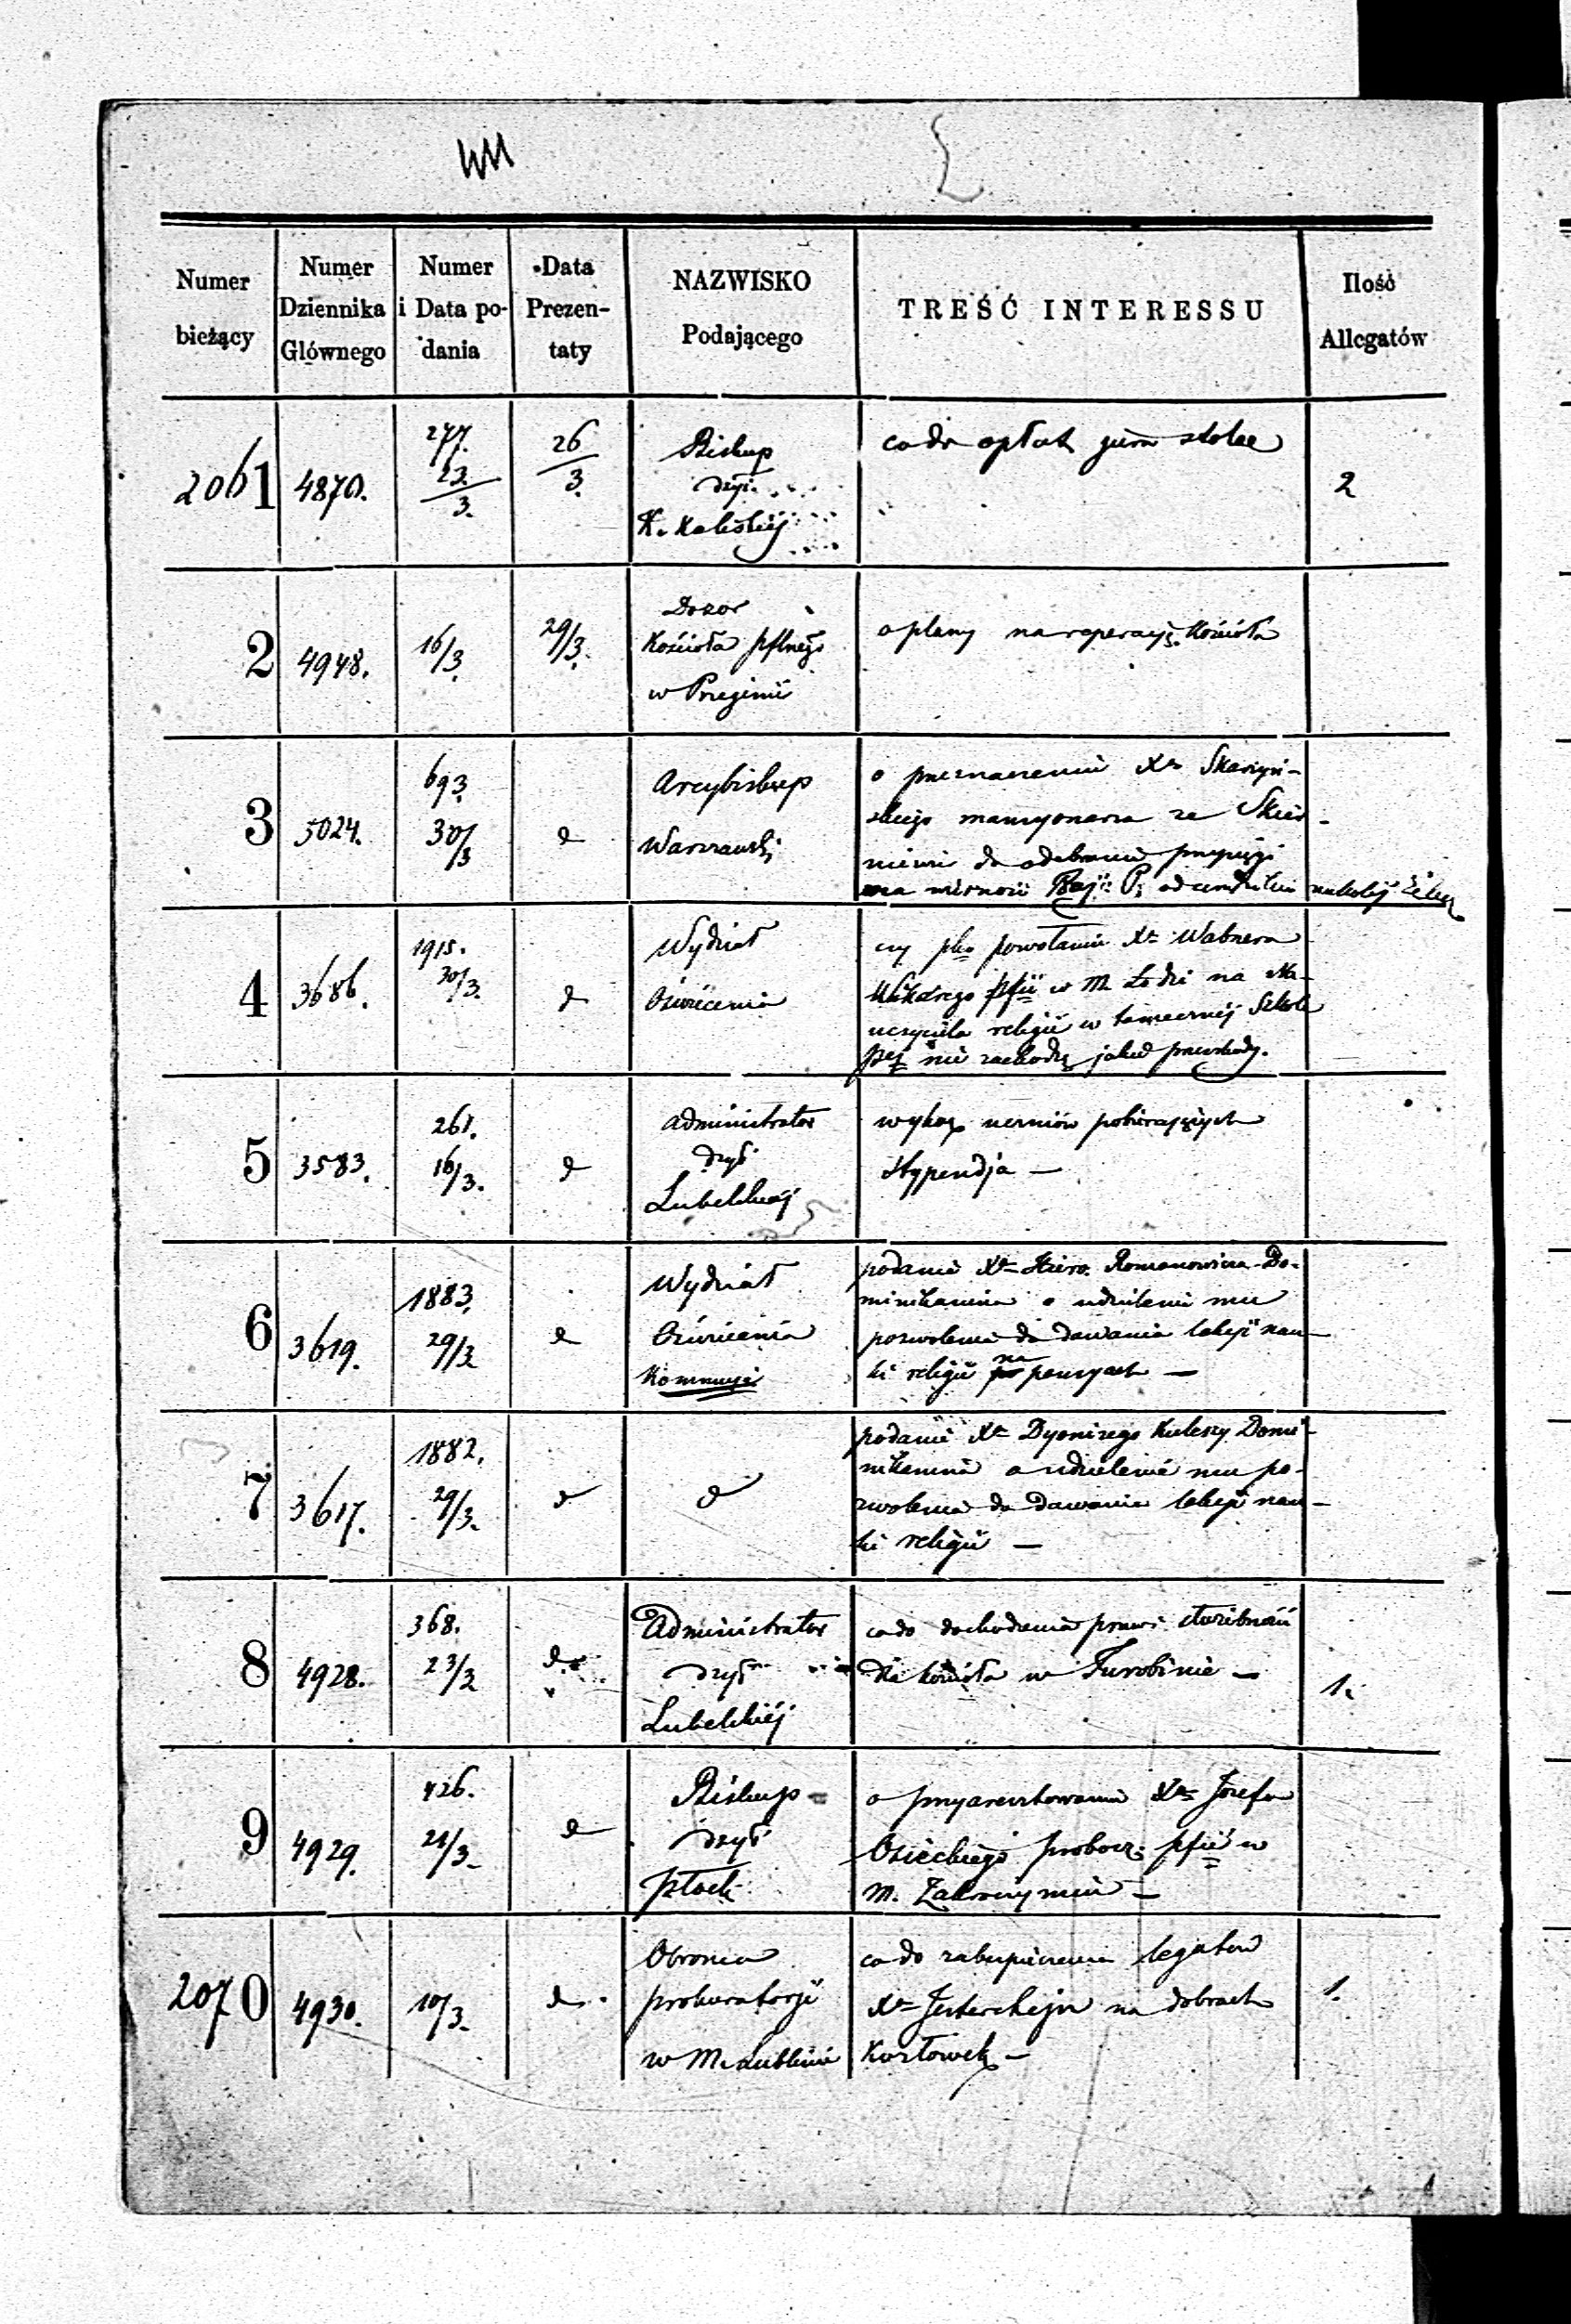 Numer bieżący | Numer Dziennika Głównego | Numer i Data podania | Data Prezentaty | NAZWISKO Podającego | TREŚĆ INTERESSU | Ilość Allegatów
2061 4870. 277. 23/3. 26/3. 2
Biskup
dyi.
K. Kaliskiéj
co do opłat jura stolae
2 4948. 16/3. 29/3.
Dozor
Kościoła pflnego
w Przeginii
o plany na reperacyę Kościoła
3 5024. 693. 30/3 d
Arcybiskup
Warszawski
o przeznaczenie Xa Skarzyń-
skiego mansyonarza ze Skier-
niewic do odebrania przysięgi
na wierność od
4 3686. 1915. 30/3. d
Wydział
Oświecenia
czy pko powołaniu Xa Wabnera
Wikarego pfii w M. Łodzi na Na-
uczyciela religii w tamecznéj Szkole
nie zachodzą jakie przeszkody.
5 3583. 261. 16/3. d
Administrator
dyi
Lubelskiéj
wykaz uczniów pobierających
stypendja —
6 3619. 1883. 29/3 d
Wydział
Oświecenia
Kommissyi
podanie Xa Hiero. Romanowicza Do-
minikanina o udzielenie mu
pozwolenia do dawania lekcji nau-
ki religii na pensyach —
7 3617. 1882. 29/3. d d
podanie Xa Dyonizego Kuleszy Domi-
nikanina o udzielenie mu po-
zwolenia do dawania lekcji nau-
ki religii —
8 4928. 368. 23/3 d 1.
Administrator
dyi
Lubelskiéj
co do dochodzenia praw
dla kościoła w Turobinie —
9 4929. 426. 21/3. d
Biskup
dyi
Płock.
o przyaresztowaniu Xa Józefa
Osieckiego probosz. pfii w
M. Zakroczymiu —
2070 4930. 10/3. d 1.
Obronca
prokuratorji
w M. Lublinie
co do zabezpieczenia legatów
Xa na dobrach
Kozłówek —